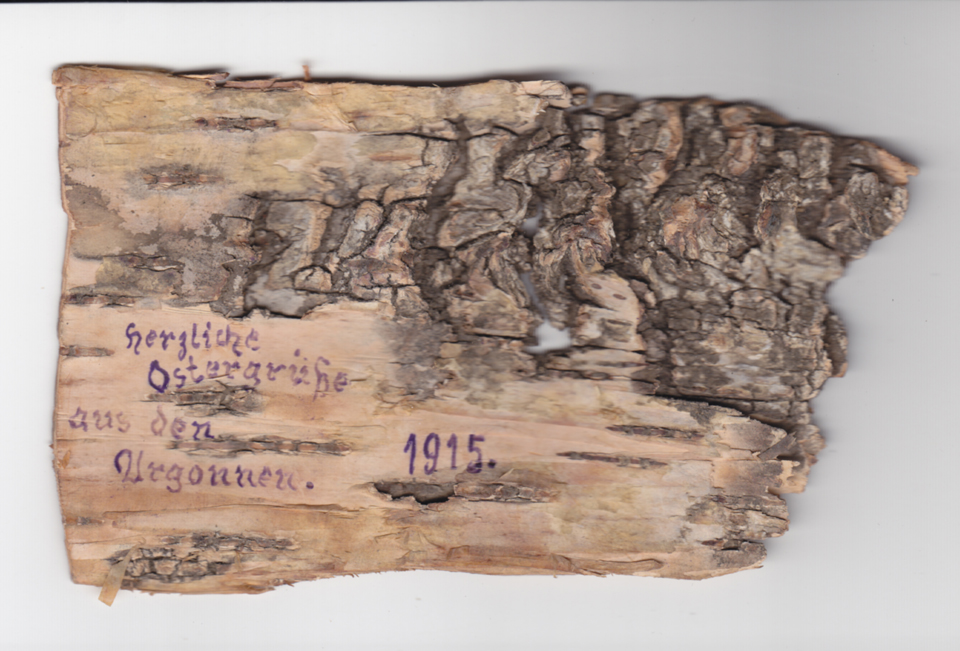 Herzliche
Ostergrüße
aus den
Argonnen.
1915.